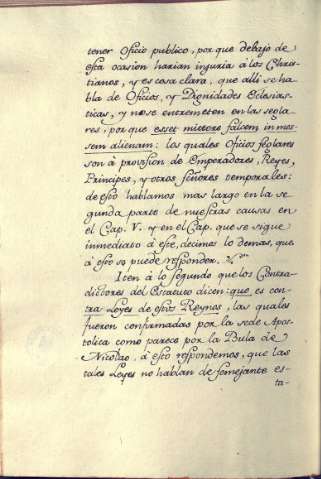 tener Oficio publico, por que debajo de
esta ocasion harian injuria á los Chris-
tianos, y es cosa clara, que alli se ha-
bla de Oficios, y Dignidades Eclesias-
ticas, y no se entremeten en las segla-
res, por que esset mittere falcem in mes-
sem alienam: los quales Oficios seglares
son á provision de Emperadores, Reyes,
Principes, y otros señores temporales:
de esto hablamos mas largo en la se-
gunda parte de nuestras causas en
el Cap. V. y en el Cap. que se sigue
inmediato á este, decimos lo demas, que
á esto se puede responder.
Iten á lo segundo que los Contra-
dictores del Estatuto dicen: que es con-
tra Leyes de estos Reynos, las quales
fueron confirmadas por la sede Apos-
tolica como parece por la Bula de
Nicolao, á esto respondemos, que las
tales Leyes no hablan de semejante es-
ta-